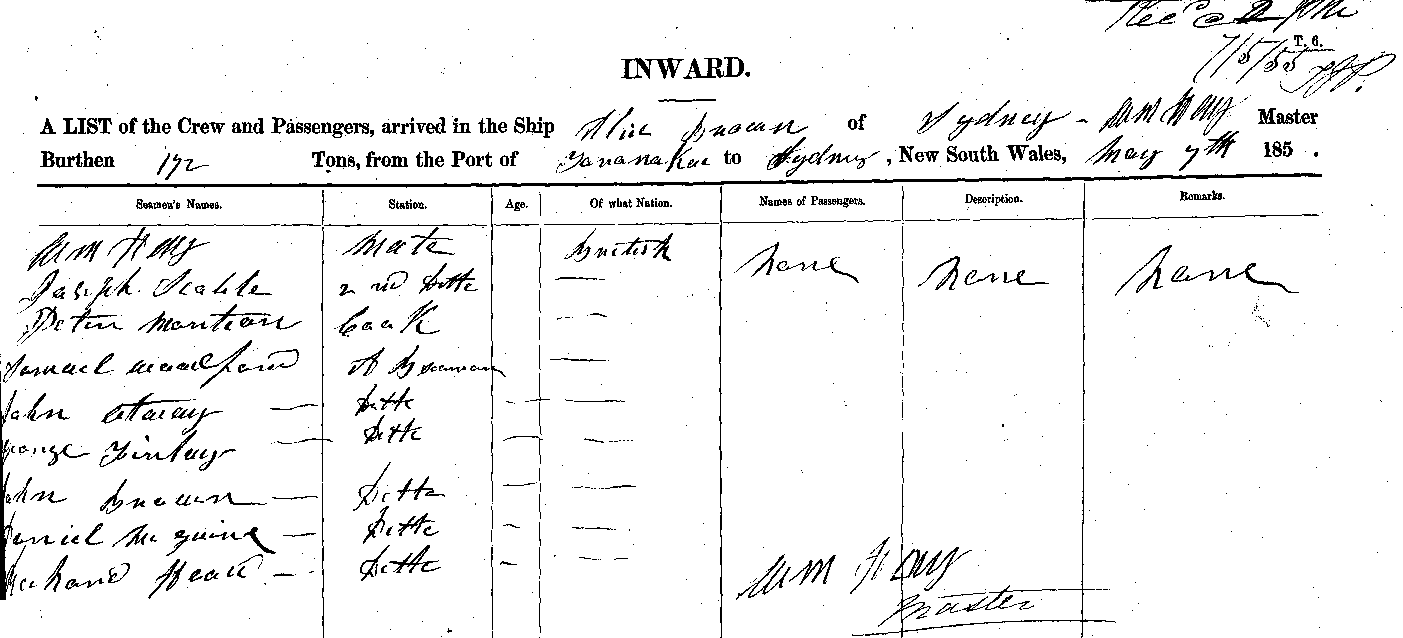 T. 6.
7/5/55
INWARD.
A LIST of the Crew and Passengers, arrived in the Ship Alice Brown of Sydney - Wm Hay Master
Burthen 172 Tons, from the Port of to Sydney, New South Wales, May 7th 185 .
Seamen's Names. Station. Age. Of what Nation. Names of Passengers. Description. Remarks.
Wm Hay Mate British None None None
Joseph 2nd Ditto —
Peter Cook —
Samuel Woodford A B Seaman —
John — Ditto — —
George Finlay — Ditto — —
John Brown — Ditto — —
Daniel McGuire — Ditto — —
Richard — Ditto — —
Wm Hay
Master